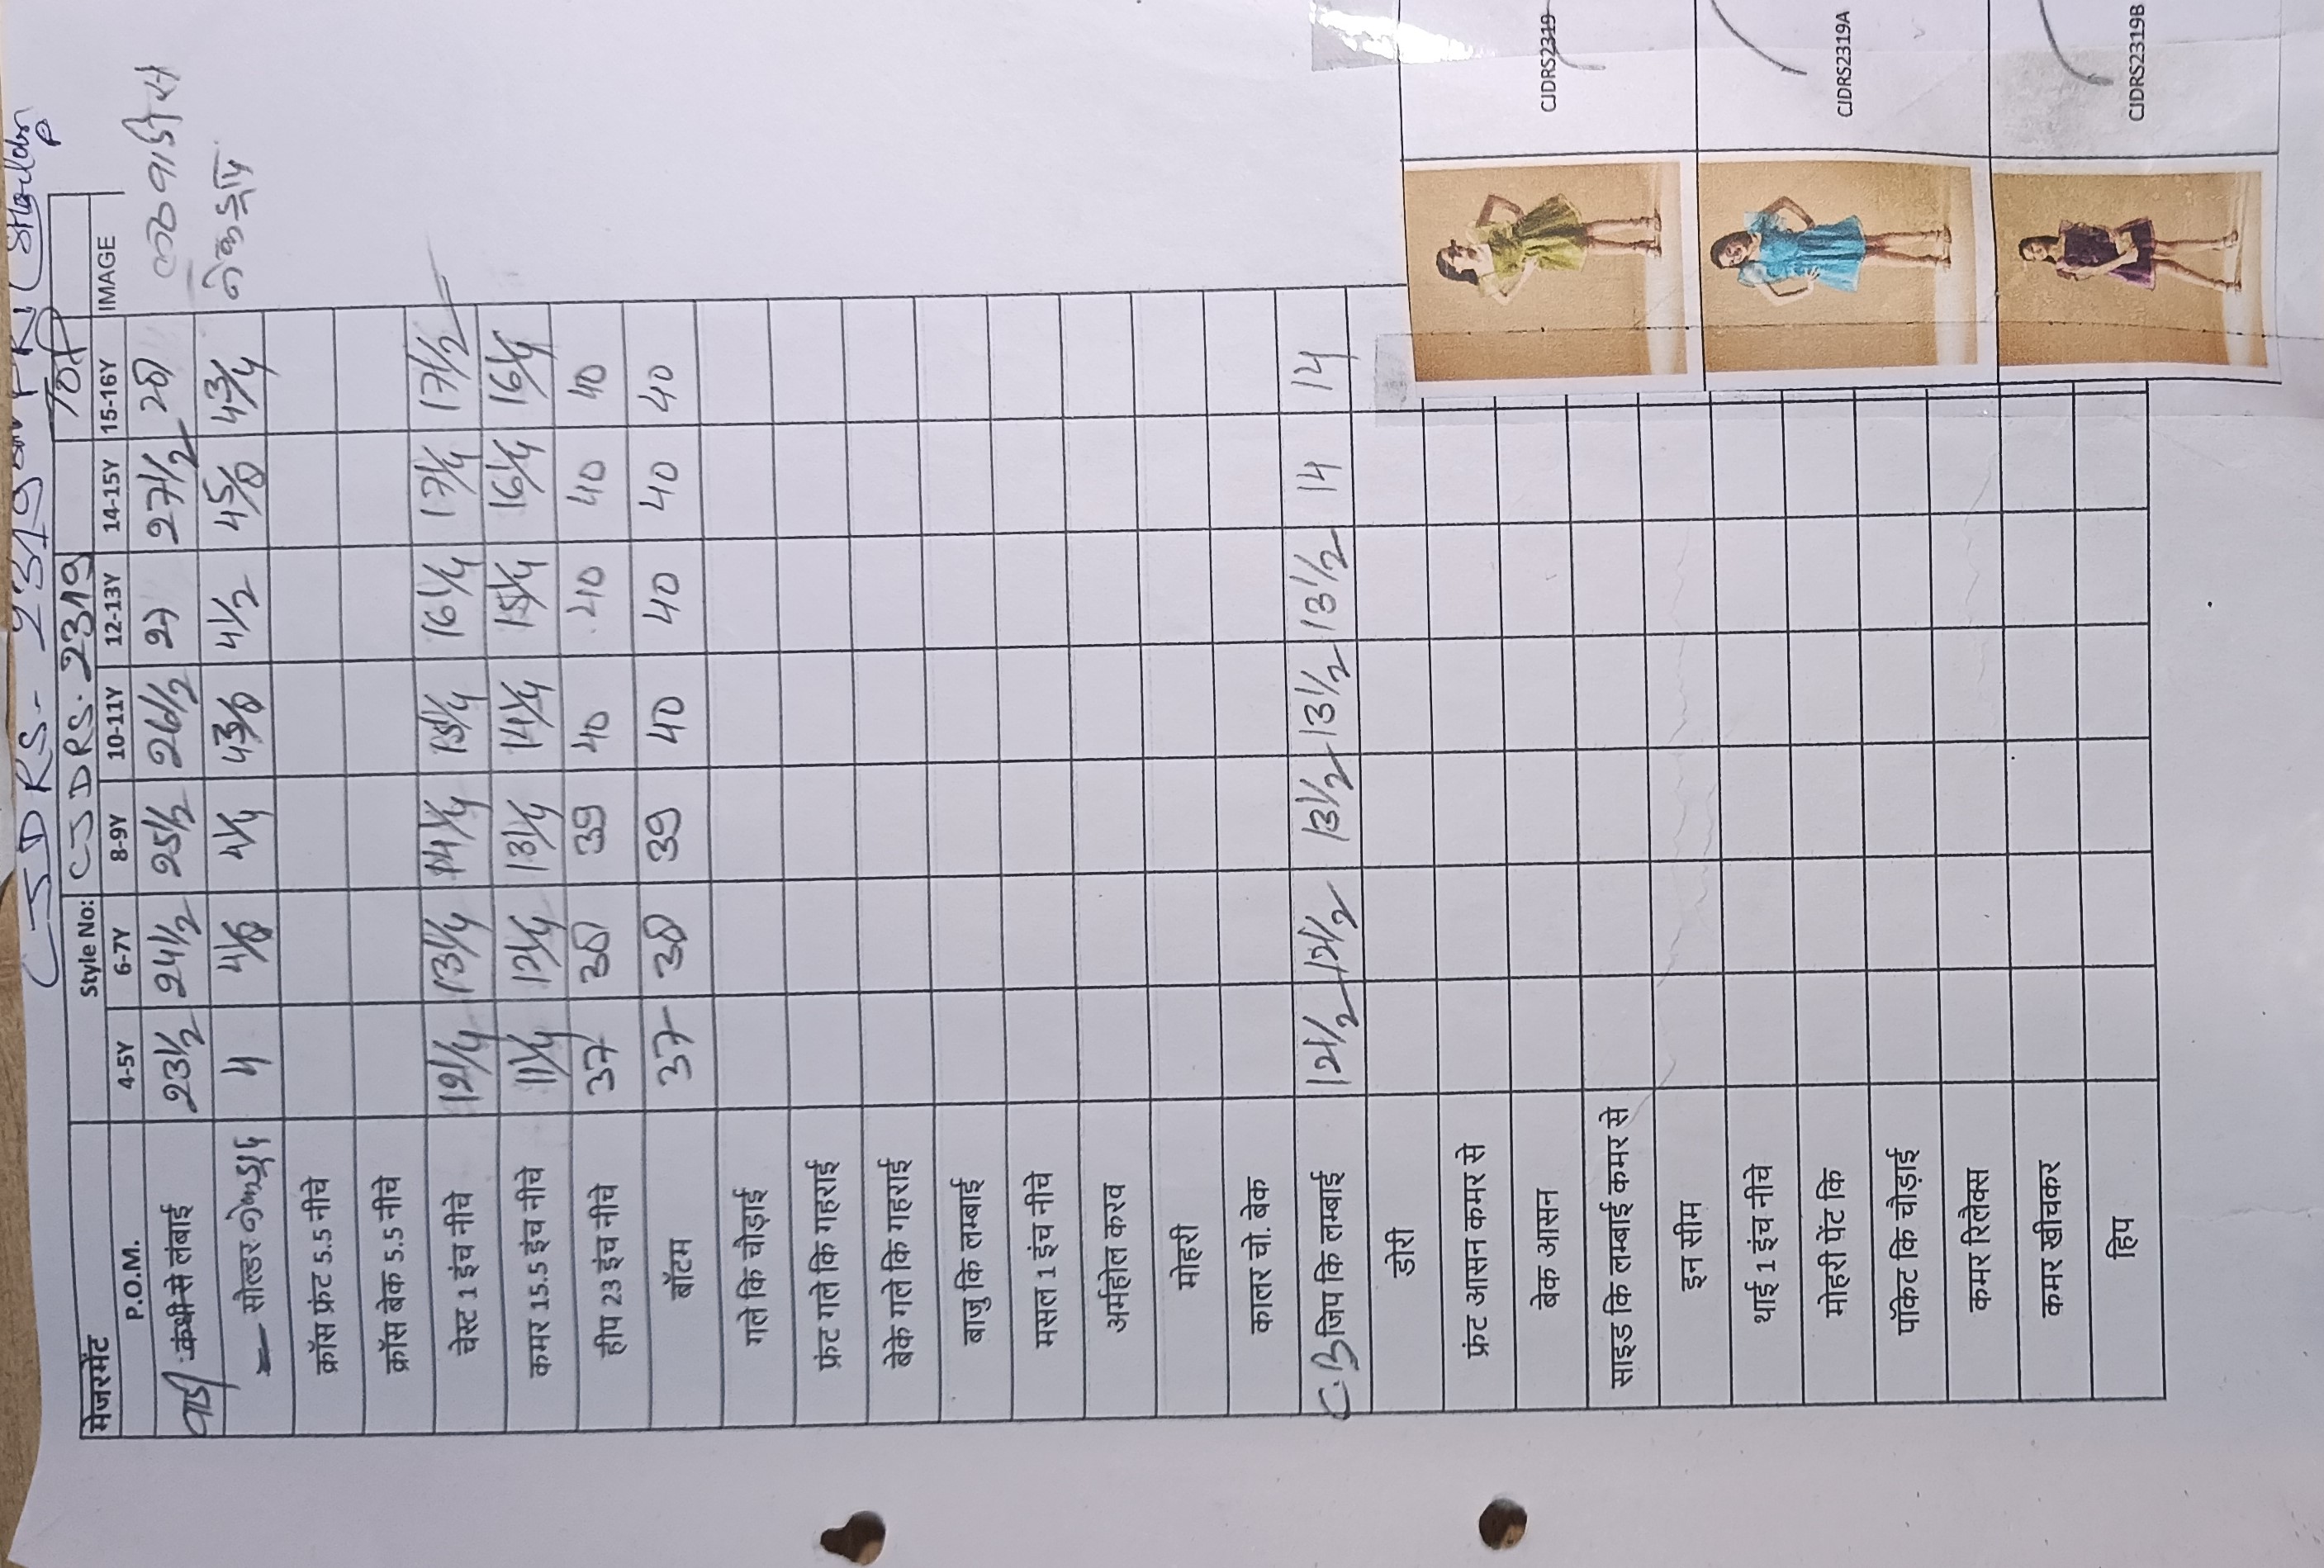 CJDRS-2319
मेजरमेंट Style No: CJDRS-2319 TOP
P.O.M. 4-5Y 6-7Y 8-9Y 10-11Y 12-13Y 14-15Y 15-16Y IMAGE
बाडी कंधी से लंबाई 23 1/2 24 1/2 25 1/2 26 1/2 27 27 1/2 28
सोल्डर नेकडीप 4 4 1/8 4 1/4 4 3/8 4 1/2 4 5/8 4 3/4 नेकडीप
क्रॉस फ्रंट 5.5 नीचे
क्रॉस बेक 5.5 नीचे
चेस्ट 1 इंच नीचे 12 1/4 13 1/4 14 1/4 15 1/4 16 1/4 17 1/4 17 1/2
कमर 15.5 इंच नीचे 11 1/4 12 1/4 13 1/4 14 1/4 15 1/4 16 1/4 16 1/4
हीप 23 इंच नीचे 37 38 39 40 40 40 40
बॉटम 37 38 39 40 40 40 40
गले कि चौड़ाई
फ्रंट गले कि गहराई
बेके गले कि गहराई
बाजु कि लम्बाई
मसल 1 इंच नीचे
अर्महोल करव
मोहरी
कालर चो. बेक
C.B जिप कि लम्बाई 12 1/2 12 1/2 13 1/2 13 1/2 13 1/2 14 14
डोरी
फ्रंट आसन कमर से
बेक आसन
साइड कि लम्बाई कमर से
इन सीम
थाई 1 इंच नीचे
मोहरी पेंट कि
पॉकेट कि चौड़ाई
कमर रिलैक्स
कमर खीचकर
हिप
CJDRS2319
CJDRS2319A
CJDRS2319B